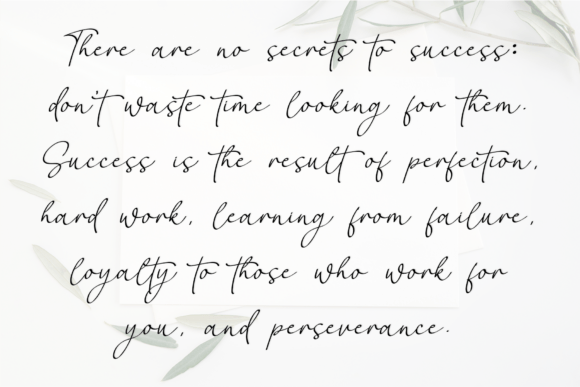 There are no secrets to success:
don't waste time looking for them.
Success is the result of perfection,
hard work, learning from failure,
loyalty to those who work for
you, and perseverance.